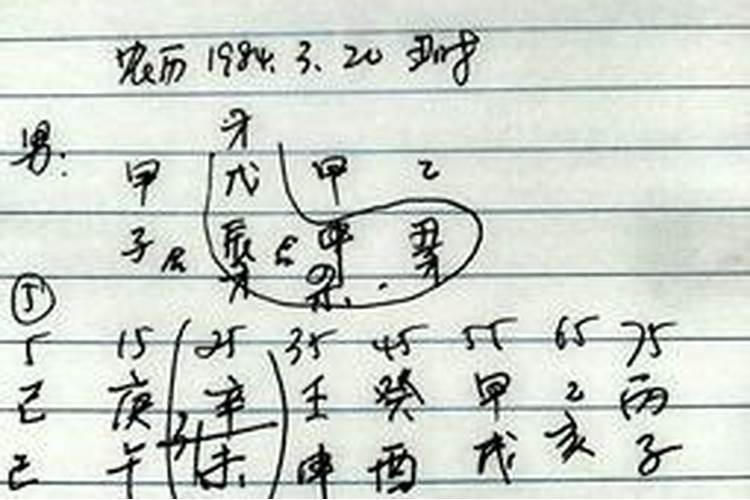 农历 1984. 3. 20 丑时
才
男: 甲 戊 甲 乙
子 辰 申 丑
才 杀 才
⑤
5 15 25 35 45 55 65 75
己 庚 辛 壬 癸 甲 乙 丙
巳 午 未 申 酉 戌 亥 子